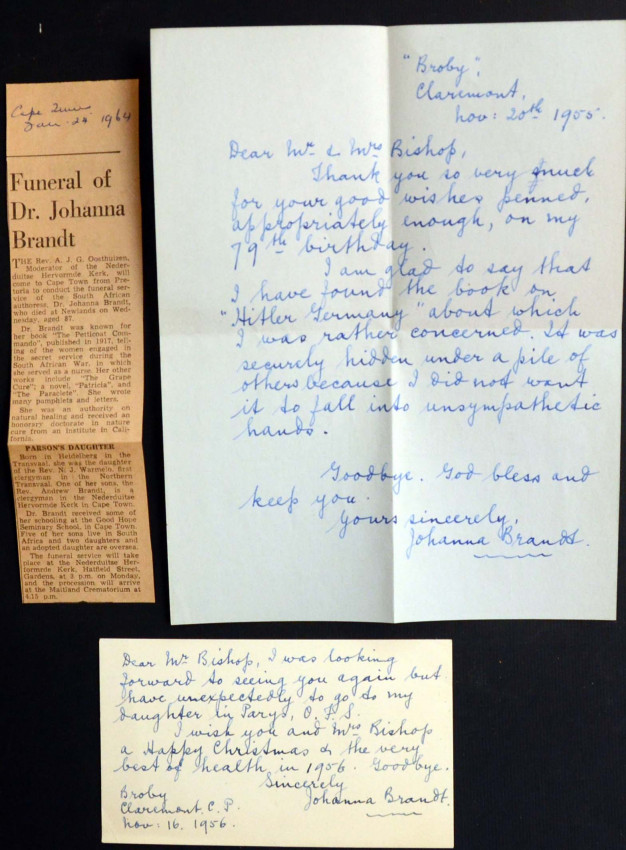 Cape Times
Jan. 24 1964
Funeral of
Dr. Johanna
Brandt
THE Rev. A. J. G. Oosthuizen,
Moderator of the Neder-
duitse Hervormde Kerk, will
come to Cape Town from Pre-
toria to conduct the funeral ser-
vice of the South African
authoress, Dr. Johanna Brandt,
who died at Newlands on Wed-
nesday, aged 87.
Dr. Brandt was known for
her book "The Petticoat Com-
mando", published in 1917, tell-
ing of the women engaged in
the secret service during the
South African War, in which
she served as a nurse. Her other
works include "The Grape
Cure"; a novel, "Patricia", and
"The Paraclete". She wrote
many pamphlets and letters.
She was an authority on
natural healing and received an
honorary doctorate in nature
cure from an institute in Cali-
fornia.
PARSON'S DAUGHTER
Born in Heidelberg in the
Transvaal, she was the daughter
of the Rev. N. J. Warmelo, first
clergyman in the Northern
Transvaal. One of her sons, the
Rev. Andrew Brandt, is a
clergyman in the Nederduitse
Hervormde Kerk in Cape Town.
Dr. Brandt received some of
her schooling at the Good Hope
Seminary School, in Cape Town.
Five of her sons live in South
Africa and two daughters and
an adopted daughter are oversea.
The funeral service will take
place at the Nederduitse Her-
formde Kerk, Hatfield Street,
Gardens, at 3 p.m. on Monday,
and the procession will arrive
at the Maitland Crematorium at
4.15 p.m.
"Broby",
Claremont,
Nov: 20th 1955.
Dear Mr & Mrs Bishop,
Thank you so very much
for your good wishes penned,
appropriately enough, on my
79th birthday.
I am glad to say that
I have found the book on
"Hitler Germany" about which
I was rather concerned. It was
securely hidden under a pile of
others because I did not want
it to fall into unsympathetic
hands.
Goodbye. God bless and
keep you.
Yours sincerely,
Johanna Brandt.
Dear Mr Bishop, I was looking
forward to seeing you again but
have unexpectedly to go to my
daughter in Parys, O.F.S.
I wish you and Mrs Bishop
a Happy Christmas & the very
best of health in 1956. Goodbye.
Sincerely
Johanna Brandt.
Broby
Claremont, C.P.
Nov: 16. 1956.